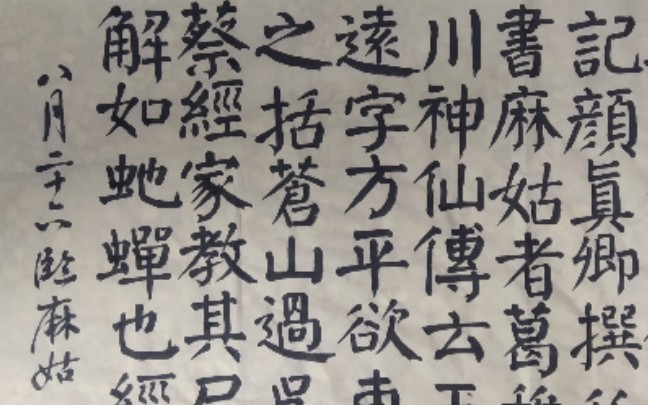 記顔眞卿撰
書麻姑者葛
川神仙傳云王
遠字方平欲東
之括蒼山過吳
蔡經家教其尸
解如虵蟬也經
八月二十六臨麻姑